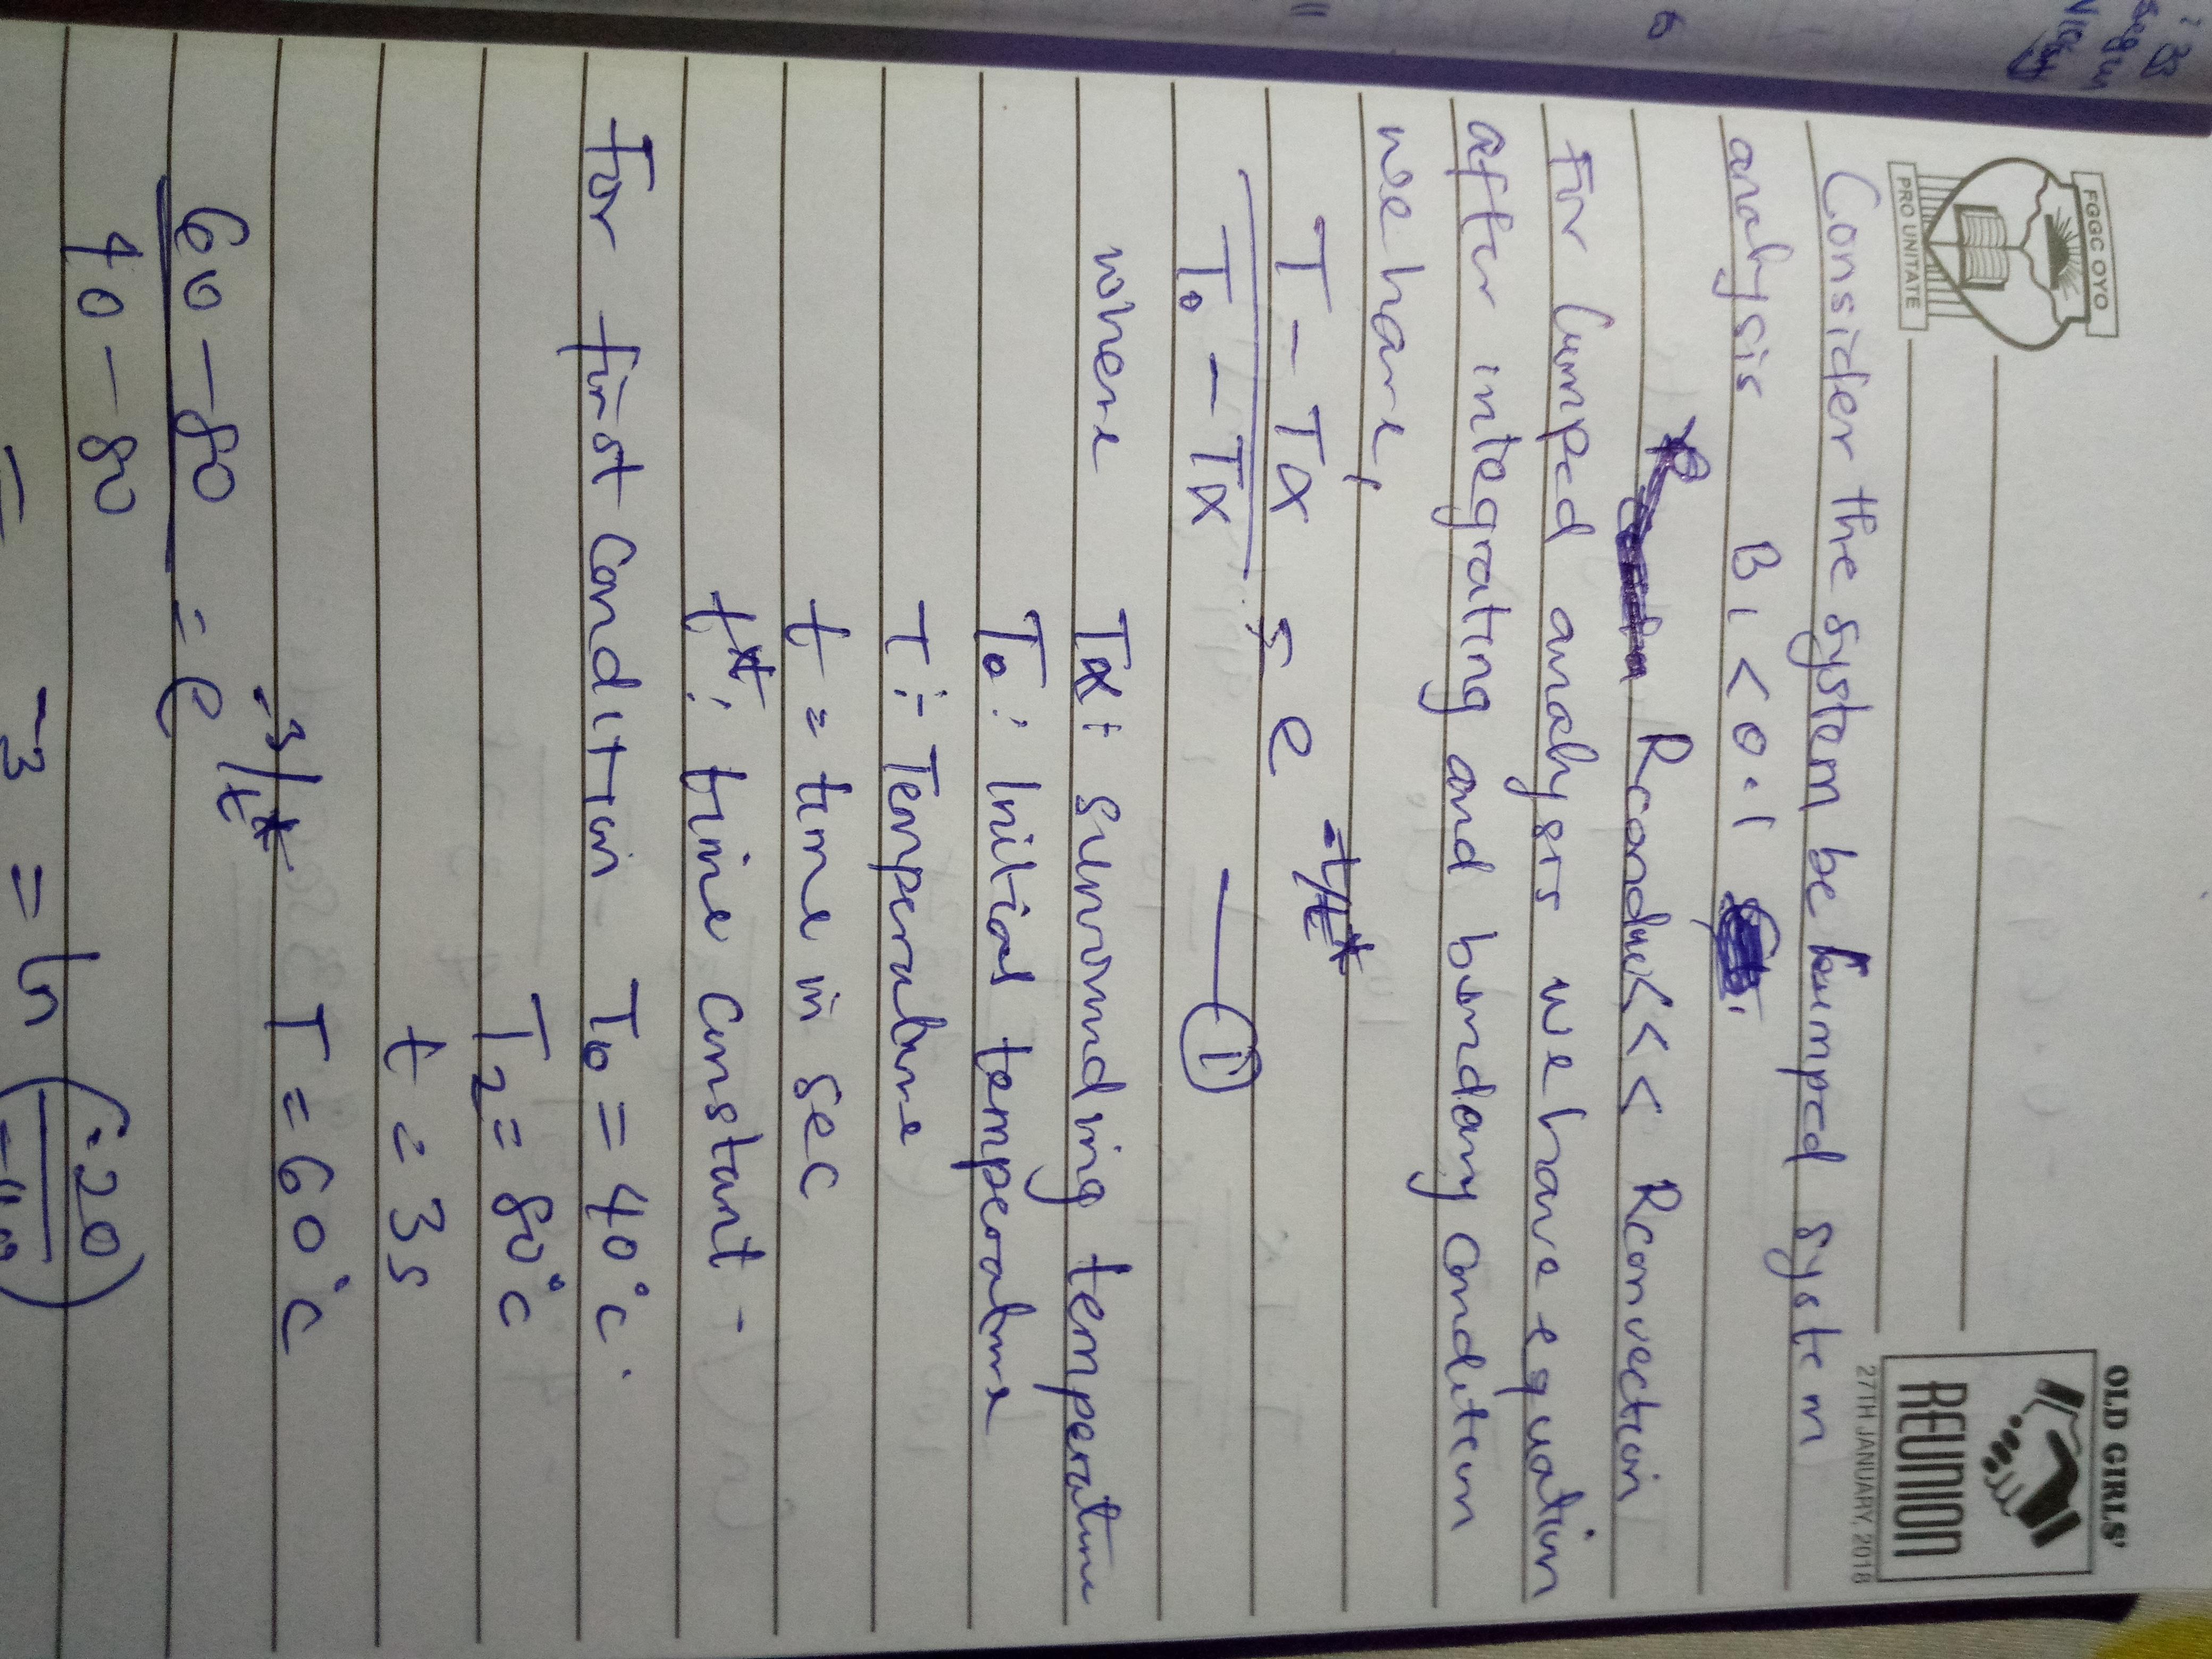 FGGC OYO
PRO UNITATE
OLD GIRLS'
REUNION
27TH JANUARY, 2018
Consider the system be lumped system
analysis Bi < 0.1
Rconduc << Rconvection
For lumped analysis we have equation
after integrating and boundary condition
we have,
T - Tα / T₀ - Tα = e^-t/t* — (1)
where Tα: surrounding temperature
T₀: Initial temperature
T: Temperature
t = time in sec
t*: time constant -
For first condition T₀ = 40°C.
T₂ = 80°C
t = 3s
T = 60°C
60 - 80 / 40 - 80 = e^-3/t*
-3 = ln (-20